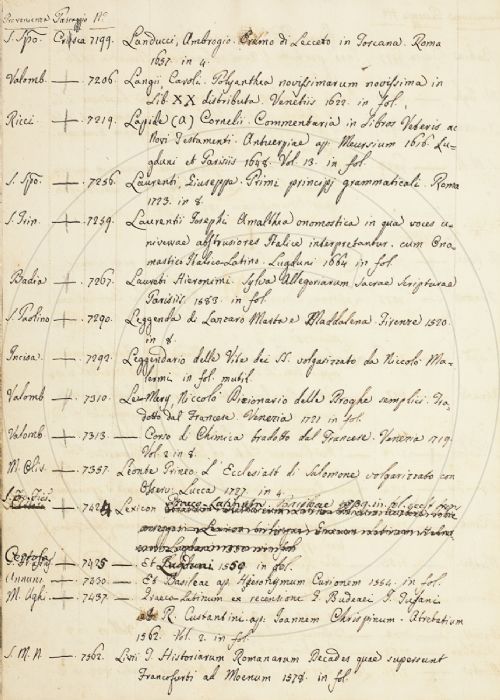 Provenienza Passaggio Nº
S. Spo. Crusca 7199. Landucci, Ambrogio. Eremo di Lecceto in Toscana. Roma
1657. in 4.
Valomb. + 7206. Langii Caroli. Polyanthea novissimarum novissima in
Lib. XX distributa. Venetiis 1622. in fol.
Ricci + 7219. Lapide (A) Corneli. Commentaria in Libros Veteris ac
Novi Testamenti. Antuerpiae ap. Meursium 1616. Lu-
gduni et Parisiis 1648. Vol. 13. in fol.
S. Spo. + 7256. Laurenti, Giuseppe. Primi principj grammaticali. Roma
1773. in 8.
S. Trin. + 7259. Laurentii Josephi Amalthea onomastica in qua voces u-
niversae abstrusiores Italice interpretantur. cum Ono-
mastico Italico-Latino. Lugduni 1664 in fol.
Badia + 7267. Laureti Hieronimi. Sylva Allegoriarum Sacrae Scripturae
Parisiis. 1583. in fol.
S. Paolino + 7290. Leggenda di Lanzaro Marta e Maddalena. Firenze 1520.
in 8.
Incisa. + 7292. Leggendario delle Vite dei SS. volgarizzato da Niccolò Ma-
lermi in fol. mutil.
Valomb + 7310. Lemery, Niccolò Dizionario delle Droghe semplici. Tra-
dotto dal Francese. Venezia 1721 in fol.
Valomb + 7313. — Corso di Chimica tradotto dal Francese. Venezia 1719.
Vol. 2. in 8.
M. Oliv. + 7357. Leonte Prineo. L'Ecclesiast di Salomone volgarizzato con
Osserv. Lucca 1727. in 4.
+ 7424 Lexicon Graeco Latinum. Parisiis in fol.
Certosa + 7425 — Et Lugduni 1550. in fol.
Annun. + 7430 — Et Basileae ap. Hieronymum Curionem 1554. in fol.
M. Ughi + 7437 — Graeco-Latinum ex recensione G. Budaei J. Tusani
R. Constantini ap. Joannem Chrispinum. Atrebatium
1562. Vol. 2. in fol.
S. M. N. + 7562. Livii T. Historiarum Romanarum Decades quae supersunt
Francofurti ad Moenum 1578. in fol.